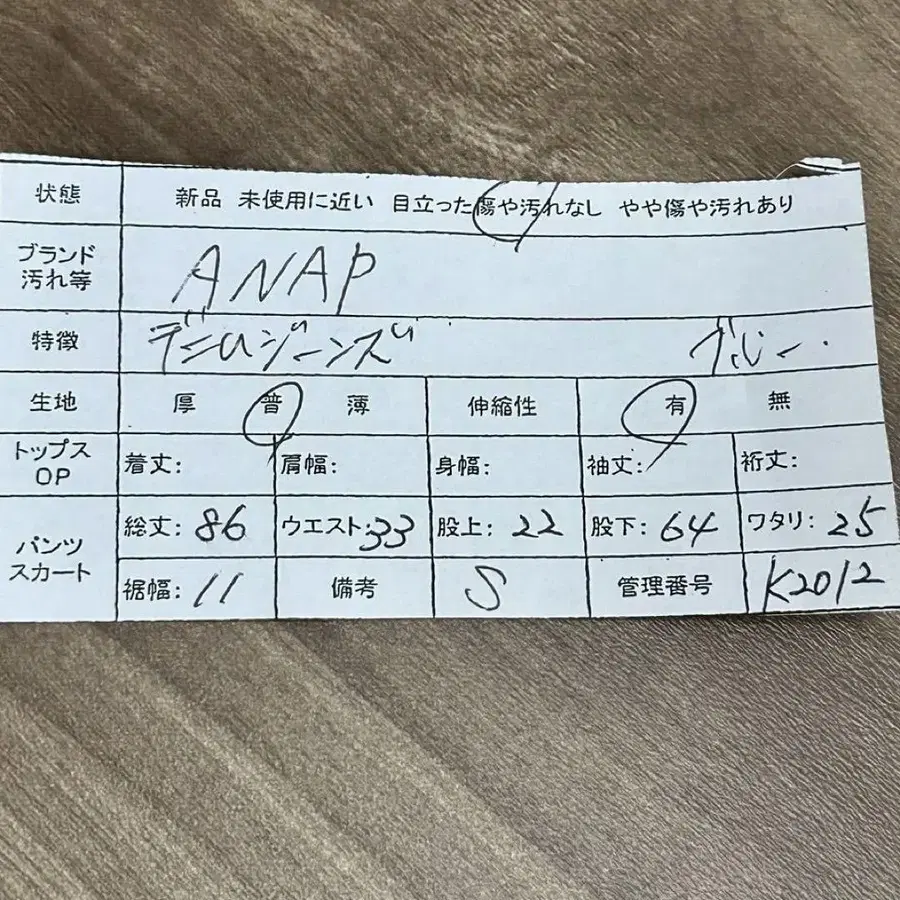 状態 新品 未使用に近い 目立った傷や汚れなし やや傷や汚れあり
ブランド
汚れ等 ANAP
特徴 デニムジーンズ ブルー.
生地 厚 普 薄 伸縮性 有 無
トップス
OP 着丈: 肩幅: 身幅: 袖丈: 裄丈:
パンツ
スカート 総丈: 86 ウエスト: 33 股上: 22 股下: 64 ワタリ: 25
裾幅: 11 備考 S 管理番号 K2012